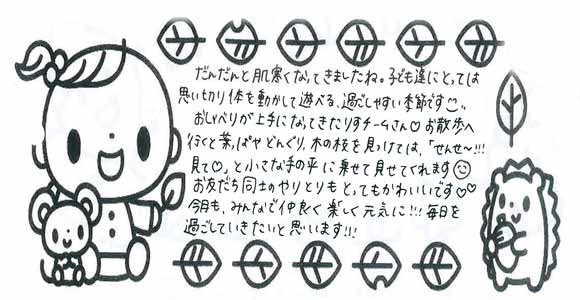 だんだんと肌寒くなってきましたね。子ども達にとっては
思い切り体を動かして遊べる、過ごしやすい季節です
おしゃべりが上手になってきたりすチームさん♡お散歩へ
行くと葉っぱやどんぐり、木の枝を見つけては、「せんせ〜!!!
見て♡」と小さな手の平に乗せて見せてくれます
お友だち同士のやりとりもとってもかわいいです♡♡
今月も、みんなで仲良く楽しく元気に!!! 毎日を
過ごしていきたいと思います!!!